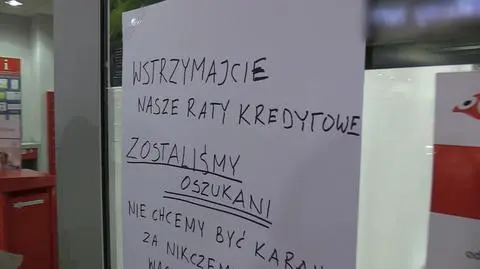 WSTRZYMAJCIE
NASZE RATY KREDYTOWE
ZOSTALIŚMY
OSZUKANI
NIE CHCEMY BYĆ
ZA
i